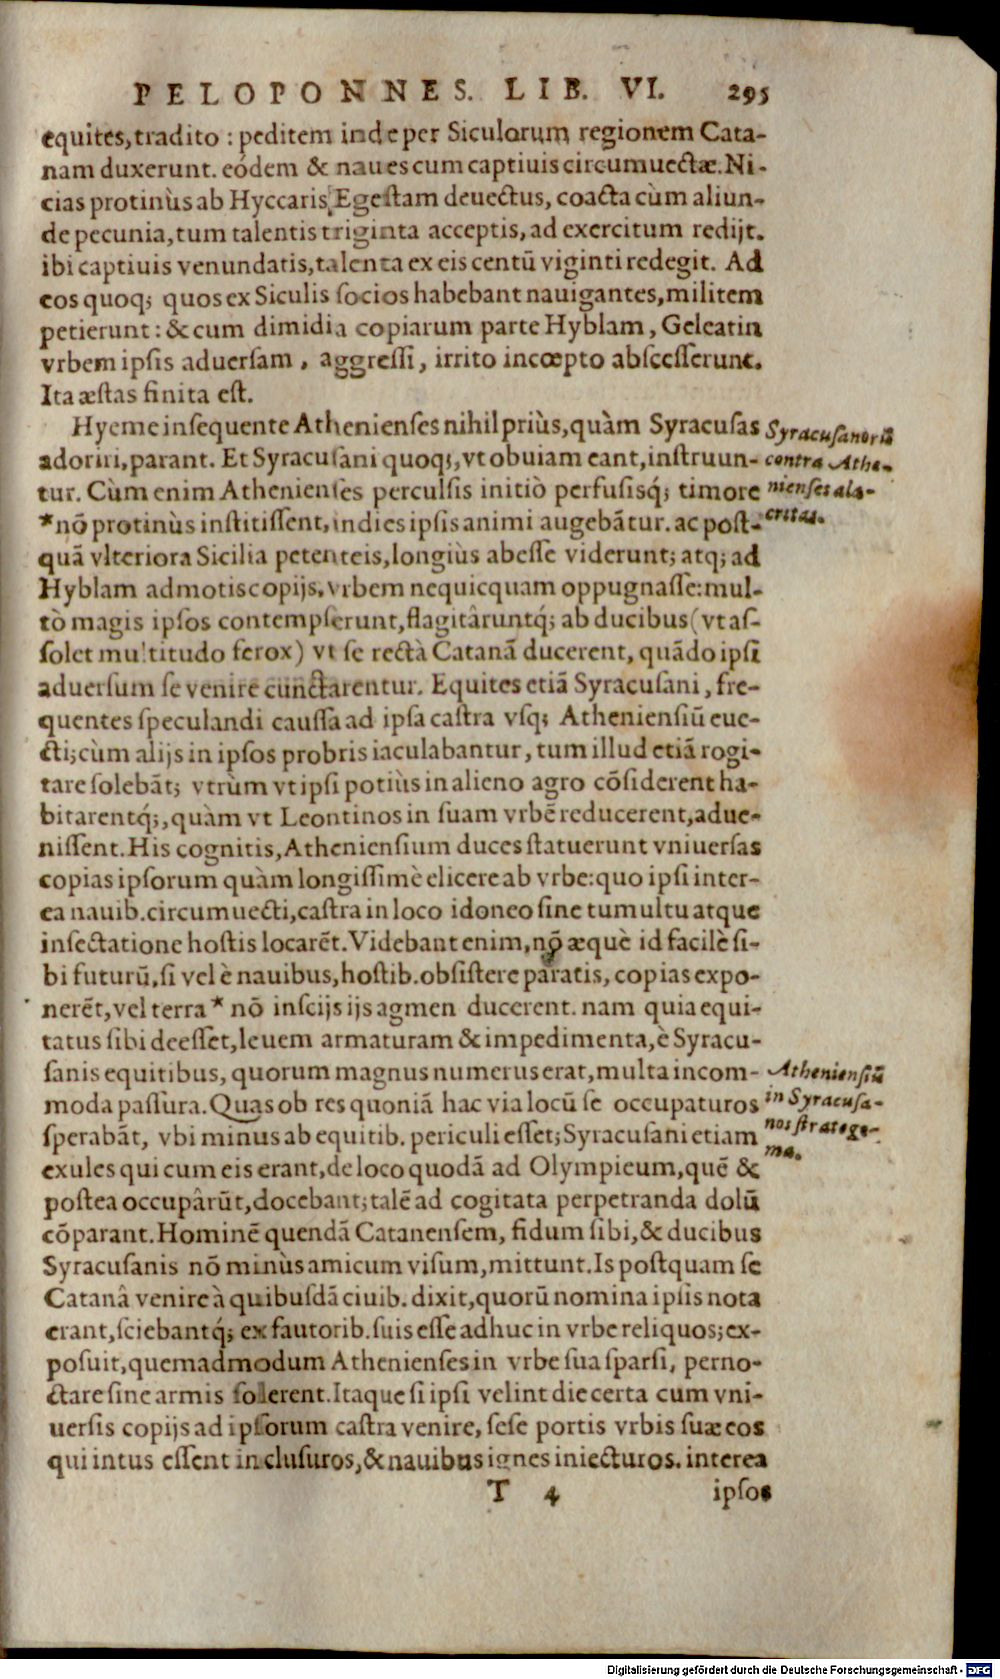 PELOPONNES. LIB. VI. 295
equites, tradito : peditem inde per Siculorum regionem Cata-
nam duxerunt. eódem & naues cum captiuis circumuectæ. Ni-
cias protinùs ab Hyccaris, Egestam deuectus, coacta cùm aliun-
de pecunia, tum talentis triginta acceptis, ad exercitum redijt.
ibi captiuis venundatis, talenta ex eis centũ viginti redegit. Ad
eos quoq; quos ex Siculis socios habebant nauigantes, militem
petierunt : & cum dimidia copiarum parte Hyblam, Geleatin
vrbem ipsis aduersam, aggressi, irrito incœpto abscesserunt.
Ita æstas finita est.
Hyeme insequente Athenienses nihil priùs, quàm Syracusas
adoriri, parant. Et Syracusani quoq;, vt obuiam eant, instruun-
tur. Cùm enim Athenienses perculsis initiò perfusisq́; timore
*nõ protinùs institissent, indies ipsis animi augebãtur. ac post-
quã vlteriora Sicilia petenteis, longiùs abesse viderunt; atq; ad
Hyblam admotis copijs, vrbem nequicquam oppugnasse: mul-
tò magis ipsos contempserunt, flagitâruntq́; ab ducibus (vt as-
solet multitudo ferox) vt se rectà Catanã ducerent, quãdo ipsi
aduersum se venire cunctarentur. Equites etiã Syracusani, fre-
quentes speculandi caussa ad ipsa castra vsq; Atheniensiũ euc-
cti; cùm alijs in ipsos probris iaculabantur, tum illud etiã rogi-
tare solebãt; vtrùm vt ipsi potiùs in alieno agro cõsiderent ha-
bitarentq́;, quàm vt Leontinos in suam vrbẽ reducerent, adue-
nissent. His cognitis, Atheniensium duces statuerunt vniuersas
copias ipsorum quàm longissimè elicere ab vrbe: quo ipsi inter-
ea nauib. circumuecti, castra in loco idoneo sine tumultu atque
insectatione hostis locarẽt. Videbant enim, nõ æquè id facilè si-
bi futurũ, si vel è nauibus, hostib. obsistere paratis, copias expo-
nerẽt, vel terra * nõ inscijs ijs agmen ducerent. nam quia equi-
tatus sibi deesset, leuem armaturam & impedimenta, è Syracu-
sanis equitibus, quorum magnus numerus erat, multa incom-
moda passura. Quas ob res quoniã hac via locũ se occupaturos
sperabãt, vbi minus ab equitib. periculi esset; Syracusani etiam
exules qui cum eis erant, de loco quodã ad Olympieum, quẽ &
postea occupârũt, docebant; talẽ ad cogitata perpetranda dolũ
cõparant. Hominẽ quendã Catanensem, fidum sibi, & ducibus
Syracusanis nõ minùs amicum visum, mittunt. Is postquam se
Catanâ venire à quibusdã ciuib. dixit, quorũ nomina ipsis nota
erant, sciebantq́; ex fautorib. suis esse adhuc in vrbe reliquos; ex-
posuit, quemadmodum Athenienses in vrbe sua sparsi, perno-
ctare sine armis solerent. Itaque si ipsi velint die certa cum vni-
uersis copijs ad ipsorum castra venire, sese portis vrbis suæ eos
qui intus essent inclusuros, & nauibus ignes iniecturos. interea
T 4 ipsos
Syracusanorũ
contra Athe-
nienses ala-
critas.
Atheniensiũ
in Syracusa-
nos stratege-
ma.
Digitalisierung gefördert durch die Deutsche Forschungsgemeinschaft - DFG